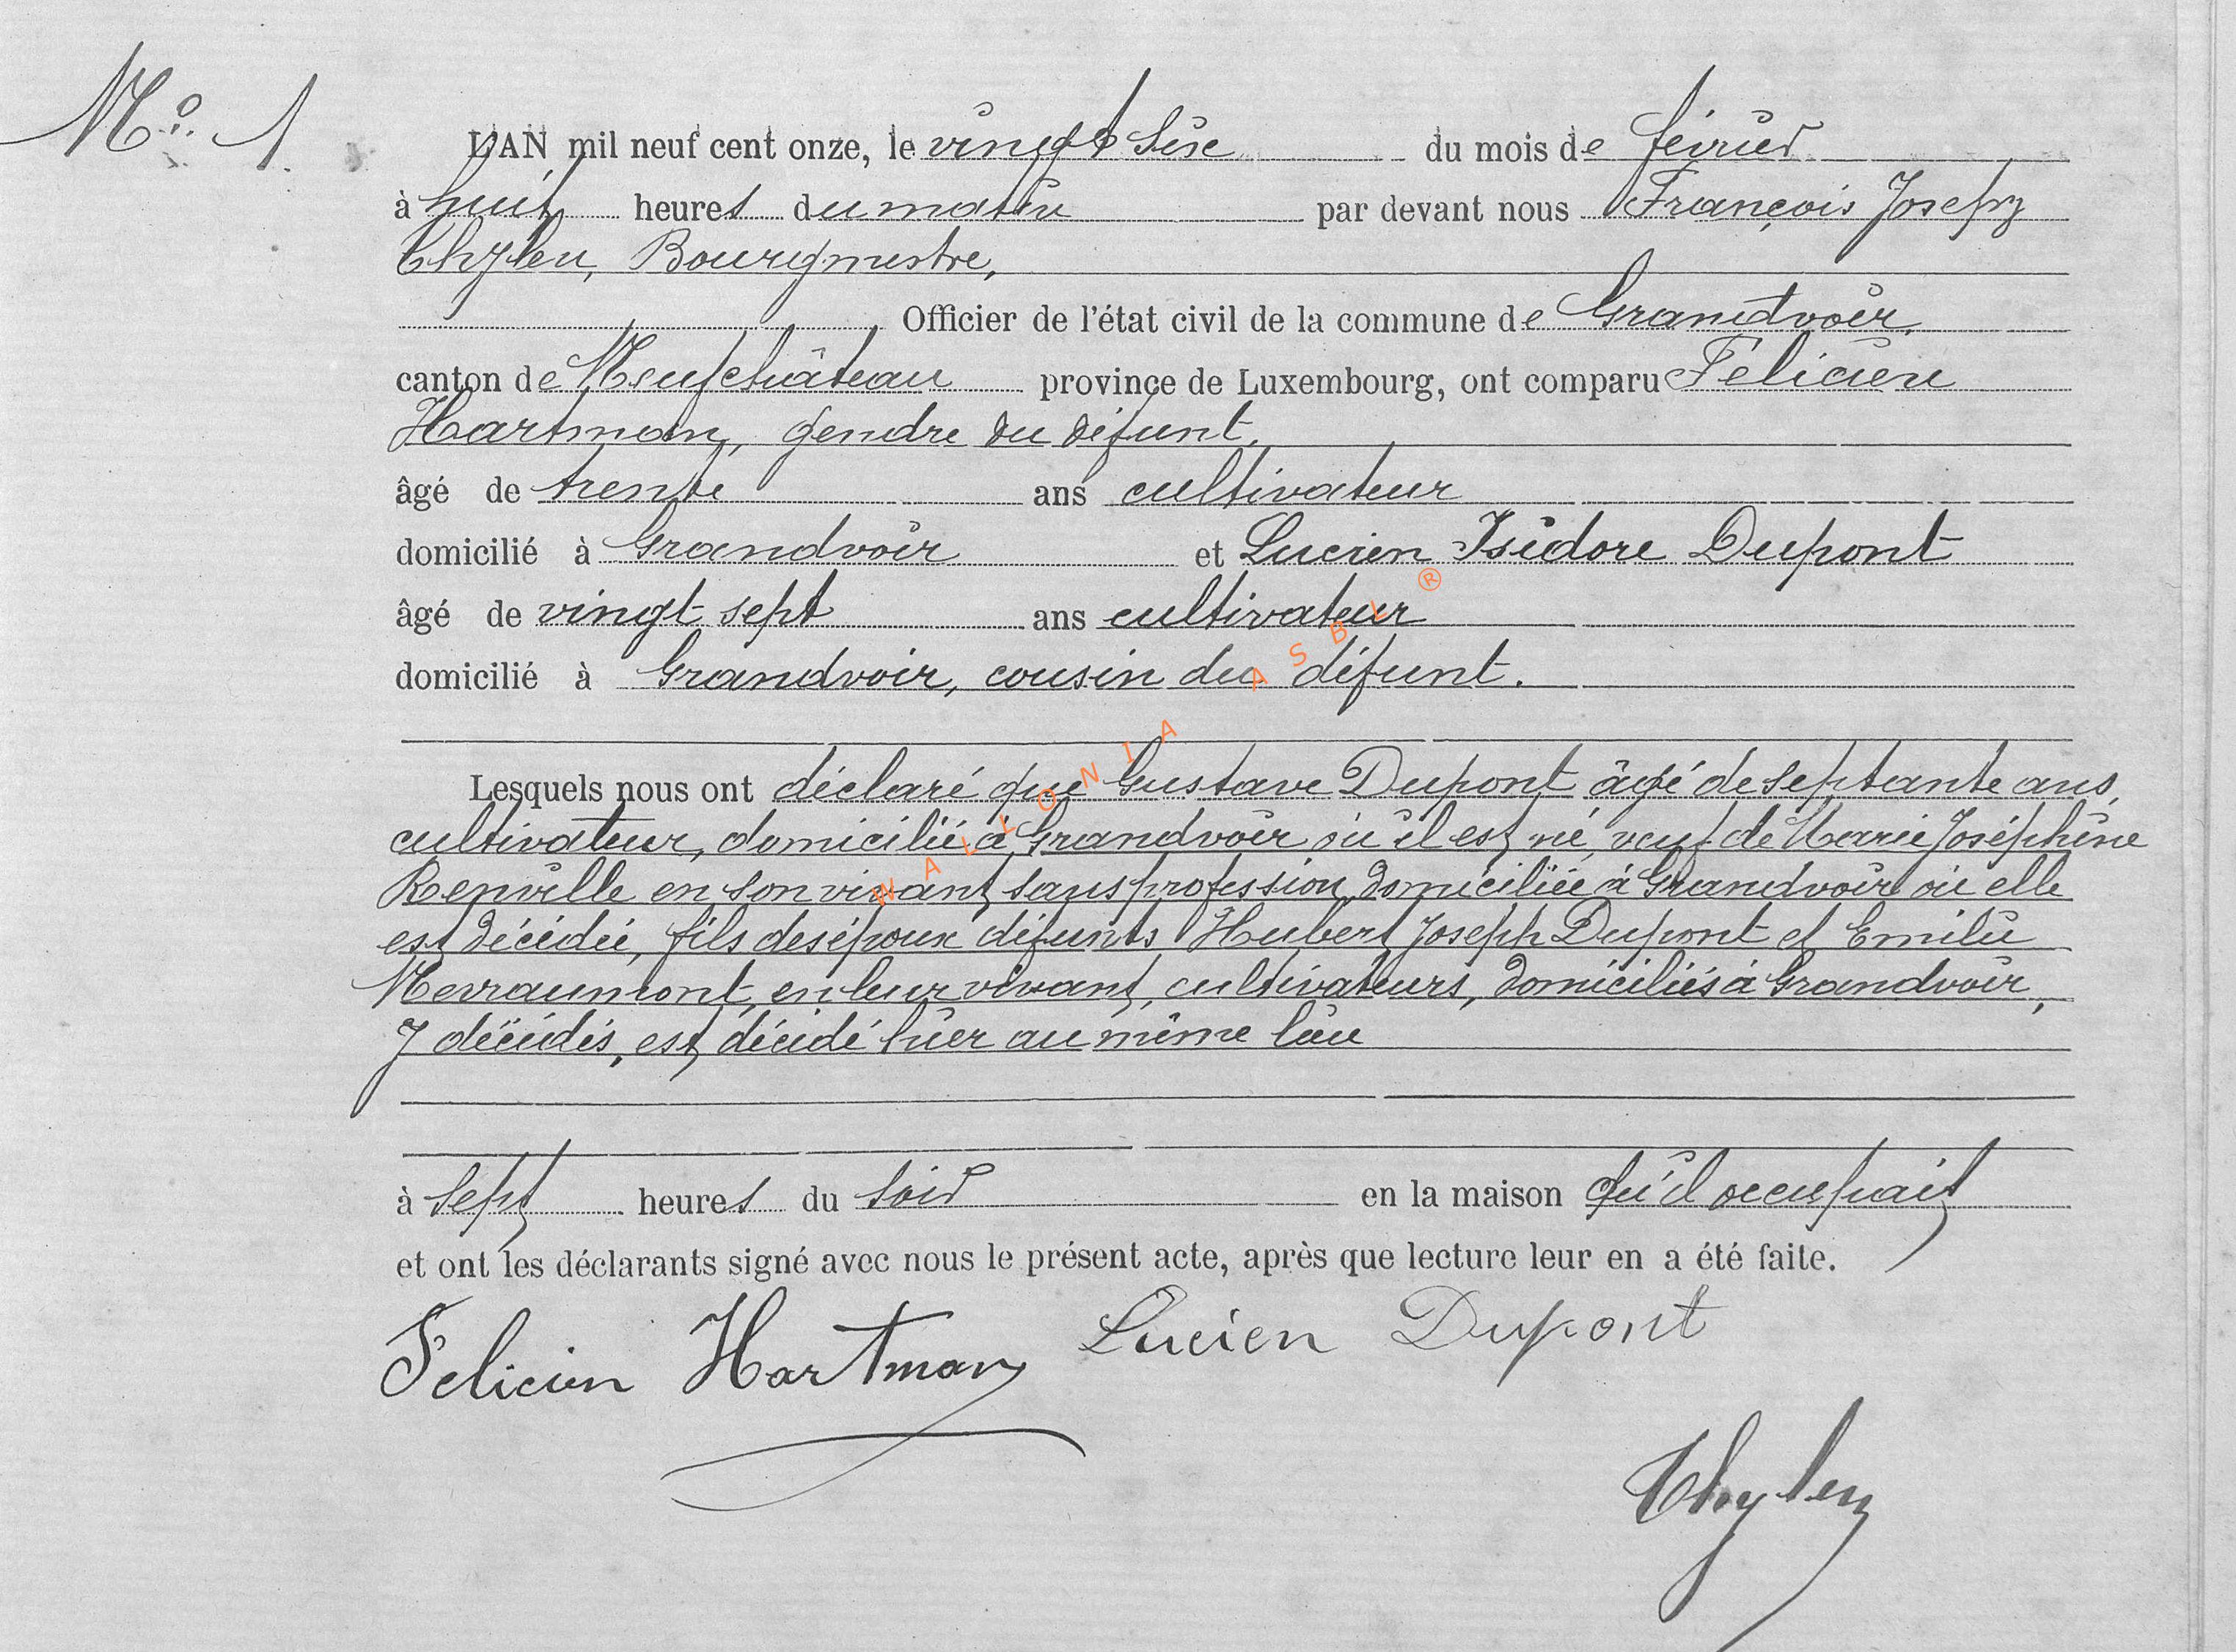 No. 1
L'AN mil neuf cent onze, le vingt six du mois de février
à huit heures du matin par devant nous François Joseph
Thyleu, Bourgmestre,
Officier de l'état civil de la commune de Grandvoir,
canton de Neufchâteau province de Luxembourg, ont comparu Felicien
Hartman, gendre du défunt,
âgé de trente ans cultivateur
domicilié à Grandvoir et Lucien Isidore Dupont
âgé de vingt sept ans cultivateur
domicilié à Grandvoir, cousin du défunt.
Lesquels nous ont déclaré que Gustave Dupont âgé de septante ans,
cultivateur, domicilié à Grandvoir où il est né, veuf de Marie Joséphine
Renville en son vivant sans profession, domiciliée à Grandvoir où elle
est décédée, fils des époux défunts Hubert Joseph Dupont et Emilie
Mevraumont, en leur vivant, cultivateurs, domiciliés à Grandvoir,
y décédés, est décédé hier au même lieu
à sept heures du soir en la maison qu'il occupait
et ont les déclarants signé avec nous le présent acte, après que lecture leur en a été faite.
Felicien Hartman Lucien Dupont
Thyleu
WALLONIA ASBL ®